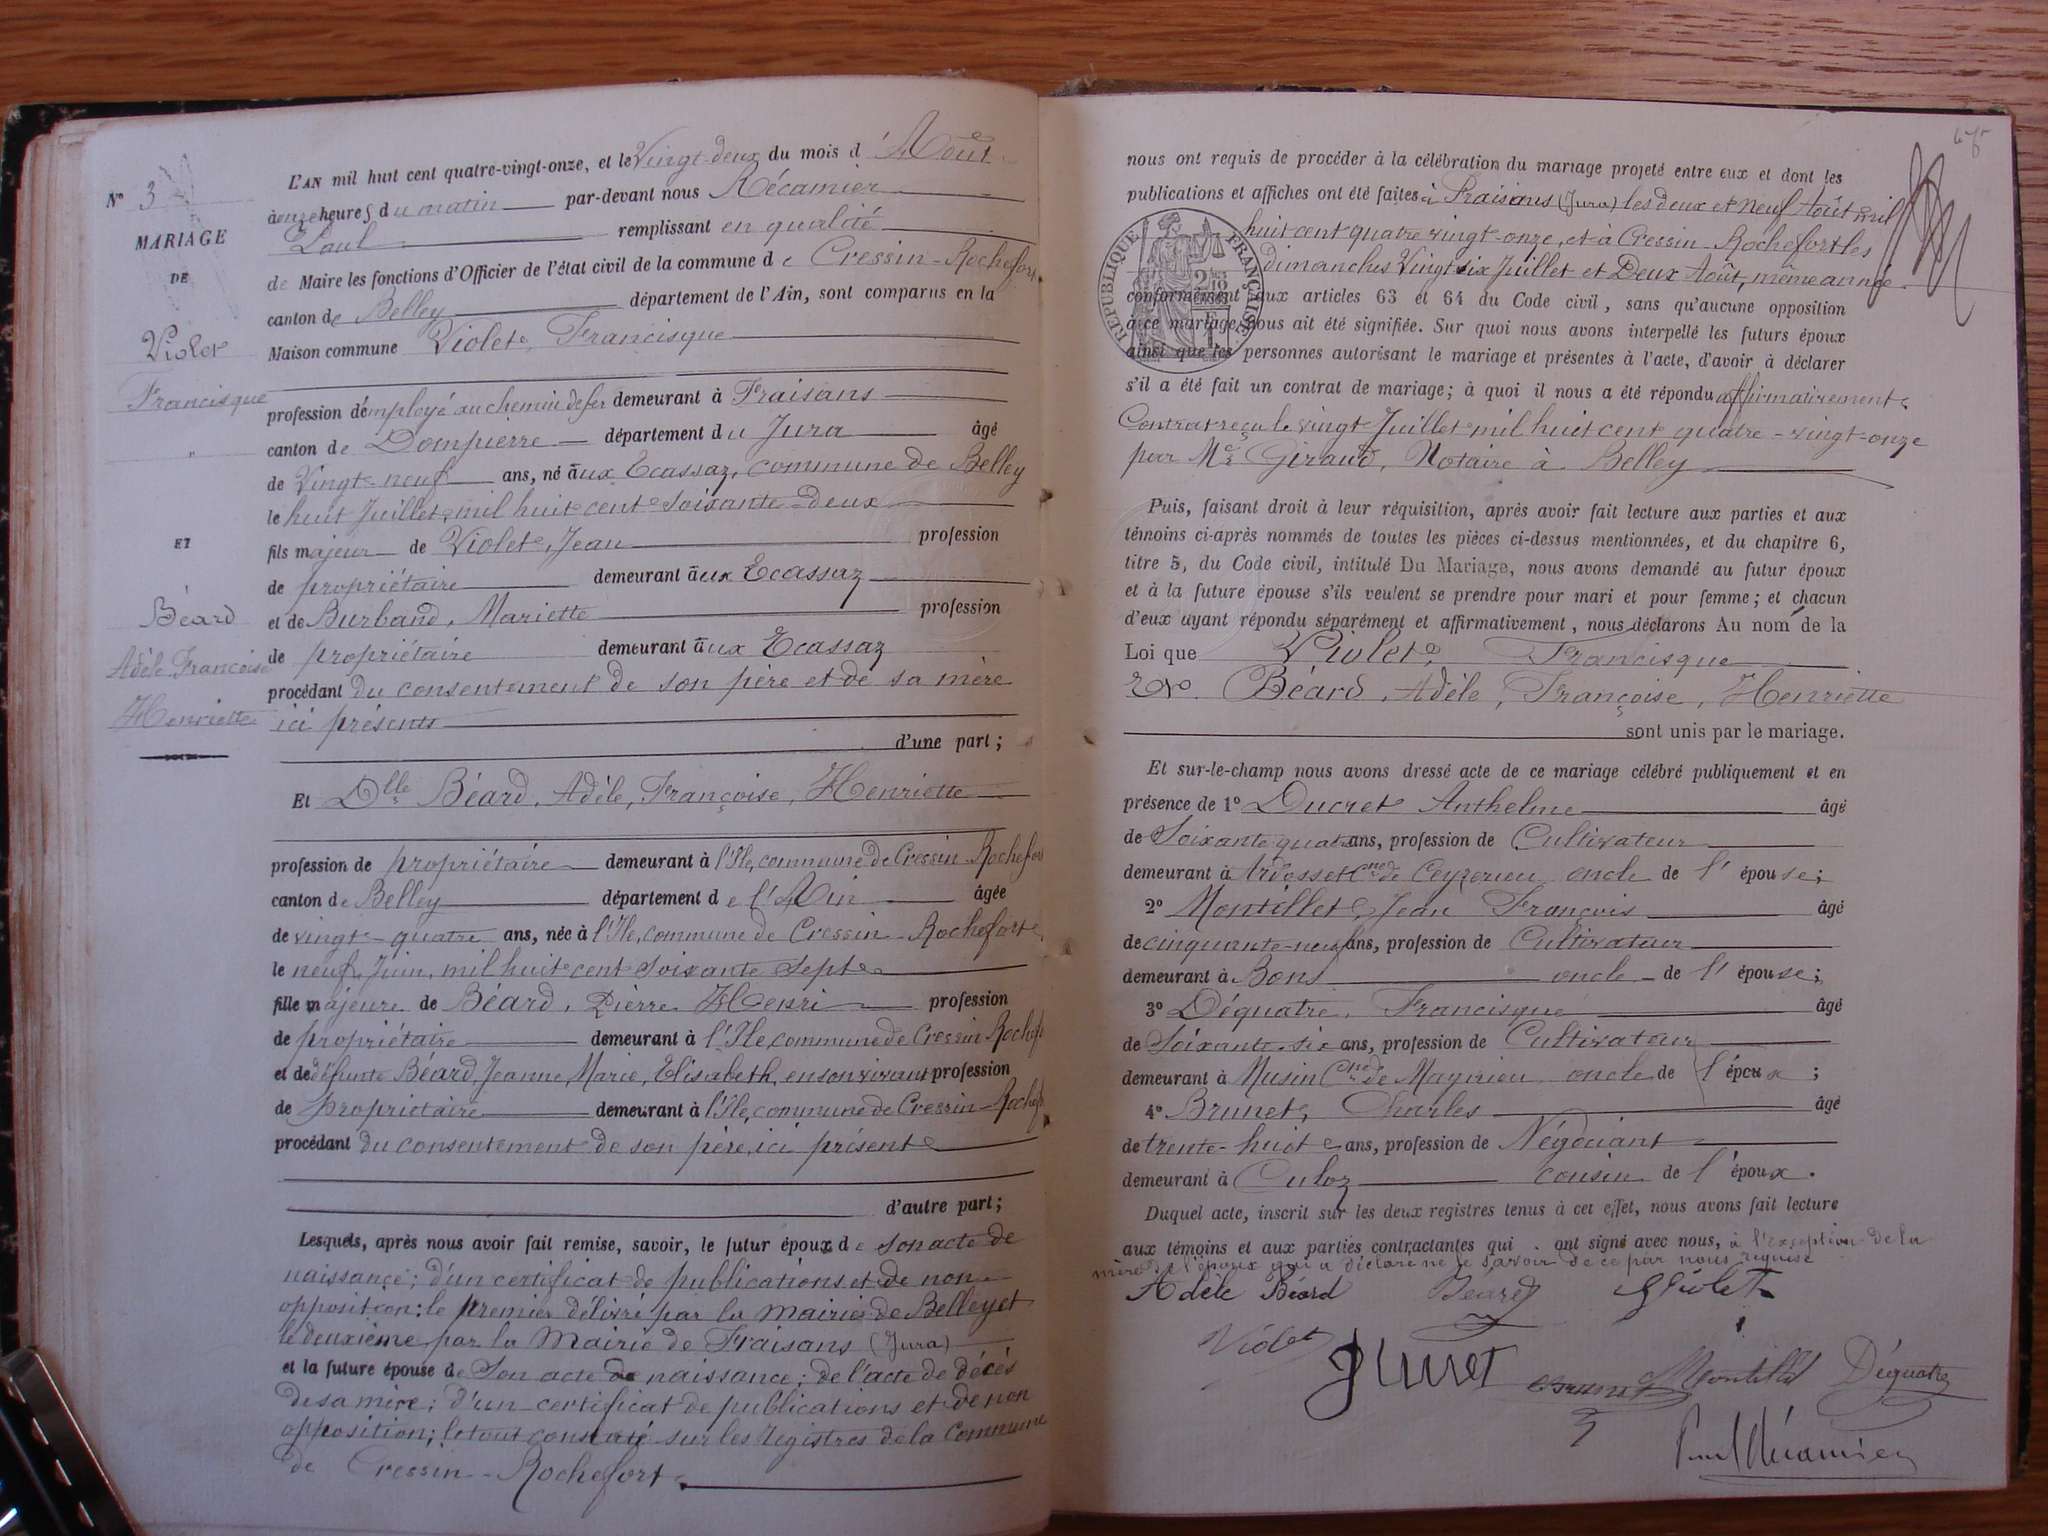 N° 3
MARIAGE
DE
Violet
Francisque
"
ET
Béard
Adèle Françoise
Henriette
L'AN mil huit cent quatre-vingt-onze, et le Vingt-deux du mois d'Août
à onze heures du matin par-devant nous Récamier
Paul remplissant en qualité
de Maire les fonctions d'Officier de l'état civil de la commune de Cressin-Rochefort
canton de Belley département de l'Ain, sont comparus en la
Maison commune Violet, Francisque
profession d'employé au chemin de fer demeurant à Fraisans
canton de Dompierre département du Jura âgé
de Vingt-neuf ans, né aux Ecassaz, commune de Belley
le huit Juillet, mil huit cent soixante-deux
fils majeur de Violet, Jean profession
de propriétaire demeurant aux Ecassaz
et de Burband, Mariette profession
de propriétaire demeurant aux Ecassaz
procédant du consentement de son père et de sa mère
ici présents
d'une part;
Et Dlle Béard, Adèle, Françoise, Henriette
profession de propriétaire demeurant à l'Ile, commune de Cressin-Rochefort
canton de Belley département de l'Ain âgée
de vingt-quatre ans, née à l'Ile, commune de Cressin-Rochefort
le neuf Juin, mil huit cent soixante sept
fille majeure de Béard, Pierre Henri profession
de propriétaire demeurant à l'Ile, commune de Cressin-Rochef
et de défunte Béard, Jeanne, Marie, Elisabeth, en son vivant profession
de propriétaire demeurant à l'Ile, commune de Cressin-Rochef
procédant du consentement de son père, ici présent
d'autre part;
Lesquels, après nous avoir fait remise, savoir, le futur époux de son acte de
naissance; d'un certificat de publications et de non
opposition: le premier délivré par la mairie de Belley et
le deuxième par la Mairie de Fraisans (Jura)
et la future épouse de Son acte de naissance; de l'acte de décès
de sa mère; d'un certificat de publications et de non
opposition; le tout constaté sur les registres de la Commune
de Cressin-Rochefort
nous ont requis de procéder à la célébration du mariage projeté entre eux et dont les
publications et affiches ont été faites à Fraisans (Jura) les deux et neuf Août mil
huit cent quatre vingt-onze, et à Cressin-Rochefort les
dimanches Vingt six Juillet et Deux Août, même année.
RÉPUBLIQUE FRANÇAISE
conformément aux articles 63 et 64 du Code civil, sans qu'aucune opposition
à ce mariage nous ait été signifiée. Sur quoi nous avons interpellé les futurs époux
ainsi que les personnes autorisant le mariage et présentes à l'acte, d'avoir à déclarer
s'il a été fait un contrat de mariage; à quoi il nous a été répondu affirmativement.
Contrat reçu le vingt Juillet mil huit cent quatre-vingt-onze
par Me Giraud, Notaire à Belley
Puis, faisant droit à leur réquisition, après avoir fait lecture aux parties et aux
témoins ci-après nommés de toutes les pièces ci-dessus mentionnées, et du chapitre 6,
titre 5, du Code civil, intitulé Du Mariage, nous avons demandé au futur époux
et à la future épouse s'ils veulent se prendre pour mari et pour femme; et chacun
d'eux ayant répondu séparément et affirmativement, nous déclarons Au nom de la
Loi que Violet, Francisque
Et Béard, Adèle, Françoise, Henriette
sont unis par le mariage.
Et sur-le-champ nous avons dressé acte de ce mariage célébré publiquement et en
présence de 1° Ducret Anthelme âgé
de Soixante quatre ans, profession de Cultivateur
demeurant à Ardosset Cne de Ceyzerieu oncle de l'épouse;
2° Montillet, Jean François âgé
de cinquante-neuf ans, profession de Cultivateur
demeurant à Bons oncle de l'épouse;
3° Déquatre, Francisque âgé
de Soixante-six ans, profession de Cultivateur
demeurant à Musin Cne de Magnieu oncle de l'époux;
4° Brunet, Charles âgé
de trente-huit ans, profession de Négociant
demeurant à Culoz cousin de l'époux.
Duquel acte, inscrit sur les deux registres tenus à cet effet, nous avons fait lecture
aux témoins et aux parties contractantes qui ont signé avec nous, à l'exception de la
mère de l'époux qui a déclaré ne le savoir de ce par nous requise
Adèle Béard Béard Violet
Violet Brunet Montillet Déquatre
Paul Récamier